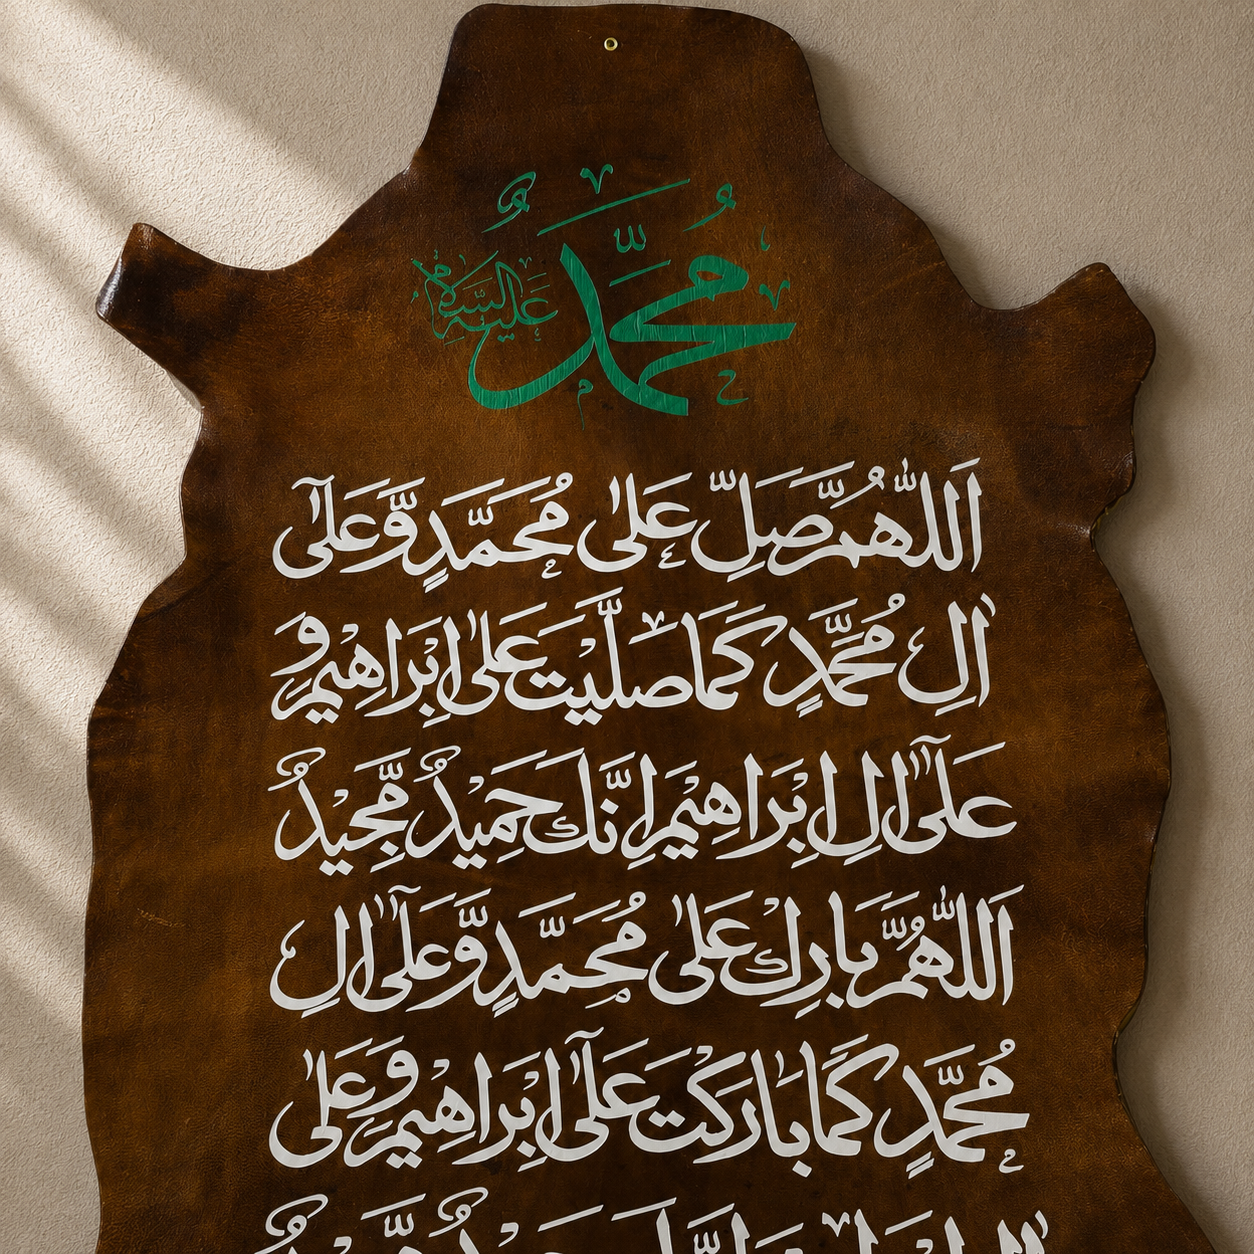 مُحَمَّدٌ
عَلَيْهِ السَّلَام
اَللّٰهُمَّ صَلِّ عَلٰى مُحَمَّدٍ وَّعَلٰٓى
اٰلِ مُحَمَّدٍ كَمَا صَلَّيْتَ عَلٰى اِبْرَاهِيْمَ وَ
عَلٰٓى اٰلِ اِبْرَاهِيْمَ اِنَّكَ حَمِيْدٌ مَّجِيْدٌ
اَللّٰهُمَّ بَارِكْ عَلٰى مُحَمَّدٍ وَّعَلٰٓى اٰلِ
مُحَمَّدٍ كَمَا بَارَكْتَ عَلٰٓى اِبْرَاهِيْمَ وَعَلٰى